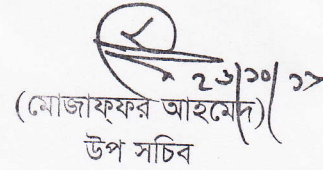 ২৬/১০/১১
(মোজাফ্ফর আহমেদ)
উপ সচিব